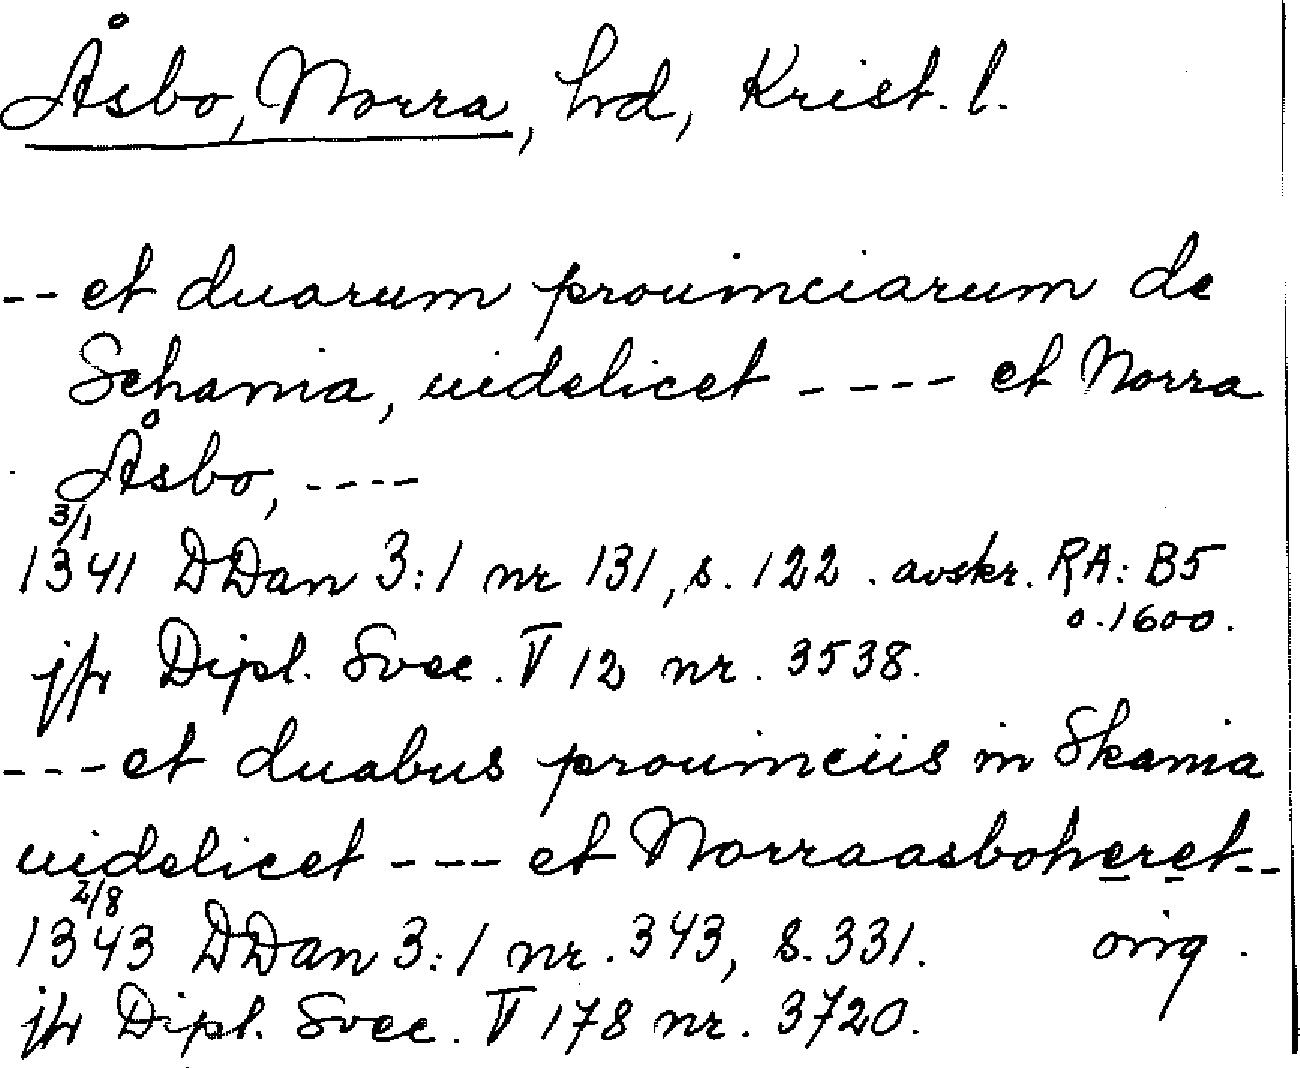 Åsbo, Norra, hrd, Krist. l.
-- et duarum prouinciarum de
Schania, uidelicet ---- et Norra
Åsbo, ----
3/1
1341 DDan 3:1 nr 131, s. 122. avskr. RA: B5
o. 1600.
jfr Dipl. Svec. V 12 nr. 3538.
--- et duabus prouinciis in Skania
uidelicet --- et Norraasboheret--
2/8
1343 DDan 3:1 nr. 343, s. 331. orig.
jfr Dipl. Svec. V 178 nr. 3720.